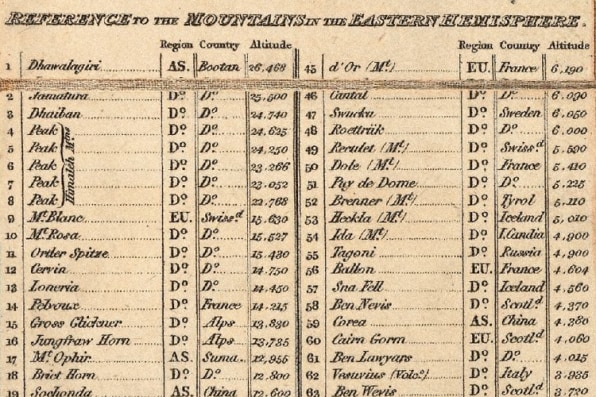 REFERENCE TO THE MOUNTAINS IN THE EASTERN HEMISPHERE.
Region Country Altitude Region Country Altitude
1 Dhawalagiri AS. Bootan 26,468 45 d'Or (Mt.) EU. France 6,190
2 Jamatura Do. Do. 25,500 46 Cantal Do. Do. 6,090
3 Dhaiban Do. Do. 24,740 47 Swucku Do. Sweden 6,050
4 Peak Do. Do. 24,625 48 Roettvik Do. Do. 6,000
5 Peak Do. Do. 24,250 49 Reculet (Mt.) Do. Swissd. 5,590
6 Peak Do. Do. 23,266 50 Dole (Mt.) Do. France 5,410
7 Peak Do. Do. 23,052 51 Puy de Dome Do. Do. 5,225
8 Peak Do. Do. 22,768 52 Brenner (Mt.) Do. Tyrol 5,110
Himaleh Mts.
9 Mt. Blanc EU. Swissd. 15,630 53 Heckla (Mt.) Do. Iceland 5,010
10 Mt. Rosa Do. Do. 15,527 54 Ida (Mt.) Do. I. Candia 4,900
11 Order Spitze Do. Do. 15,430 55 Tagoni Do. Russia 4,900
12 Cervin Do. Do. 14,750 56 Ballon EU. France 4,604
13 Loneria Do. Do. 14,450 57 Sna Fell Do. Iceland 4,560
14 Pelvoux Do. France 14,215 58 Ben Nevis Do. Scotld. 4,370
15 Gross Glickner Do. Alps 13,830 59 Corea AS. China 4,380
16 Jungfraw Horn Do. Alps 13,735 60 Cairn Gorm EU. Scotld. 4,060
17 Mt. Ophir AS. Suma. 12,955 61 Ben Lawyars Do. Do. 4,015
18 Briet Horn Do. Do. 12,800 62 Vesuvius (Volco.) Do. Italy 3,935
19 Sochonda AS. China 12,600 63 Ben Wevis Do. Scotld. 3,720